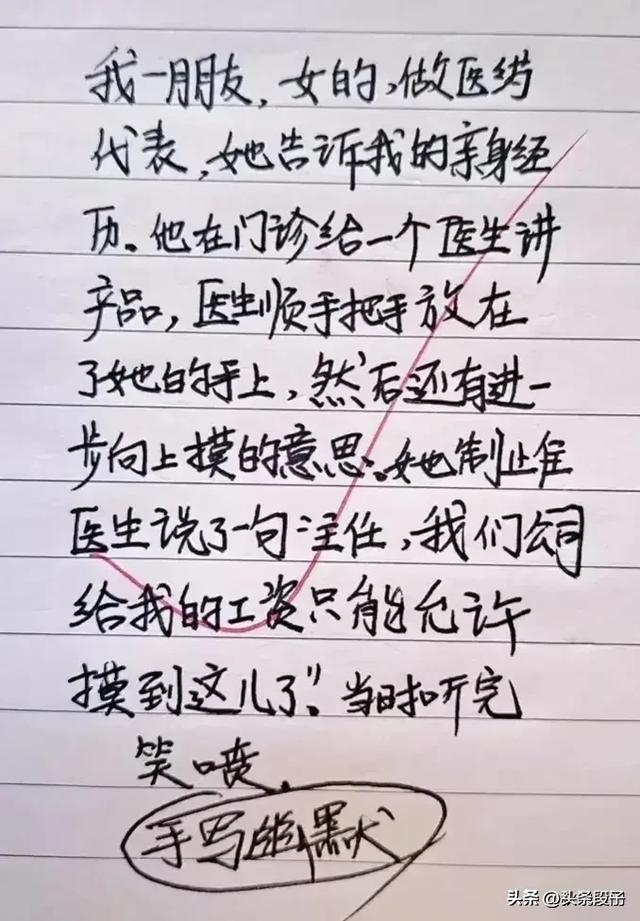 我一朋友，女的，做医药
代表，她告诉我的亲身经
历。他在门诊给一个医生讲
产品，医生顺手把手放在
了她的手上，然后还有进一
步向上摸的意思。她制止住
医生说了一句"主任，我们公司
给我的工资只能允许
摸到这儿了"。当时听完
笑喷。
手写幽默
头条@头条段子